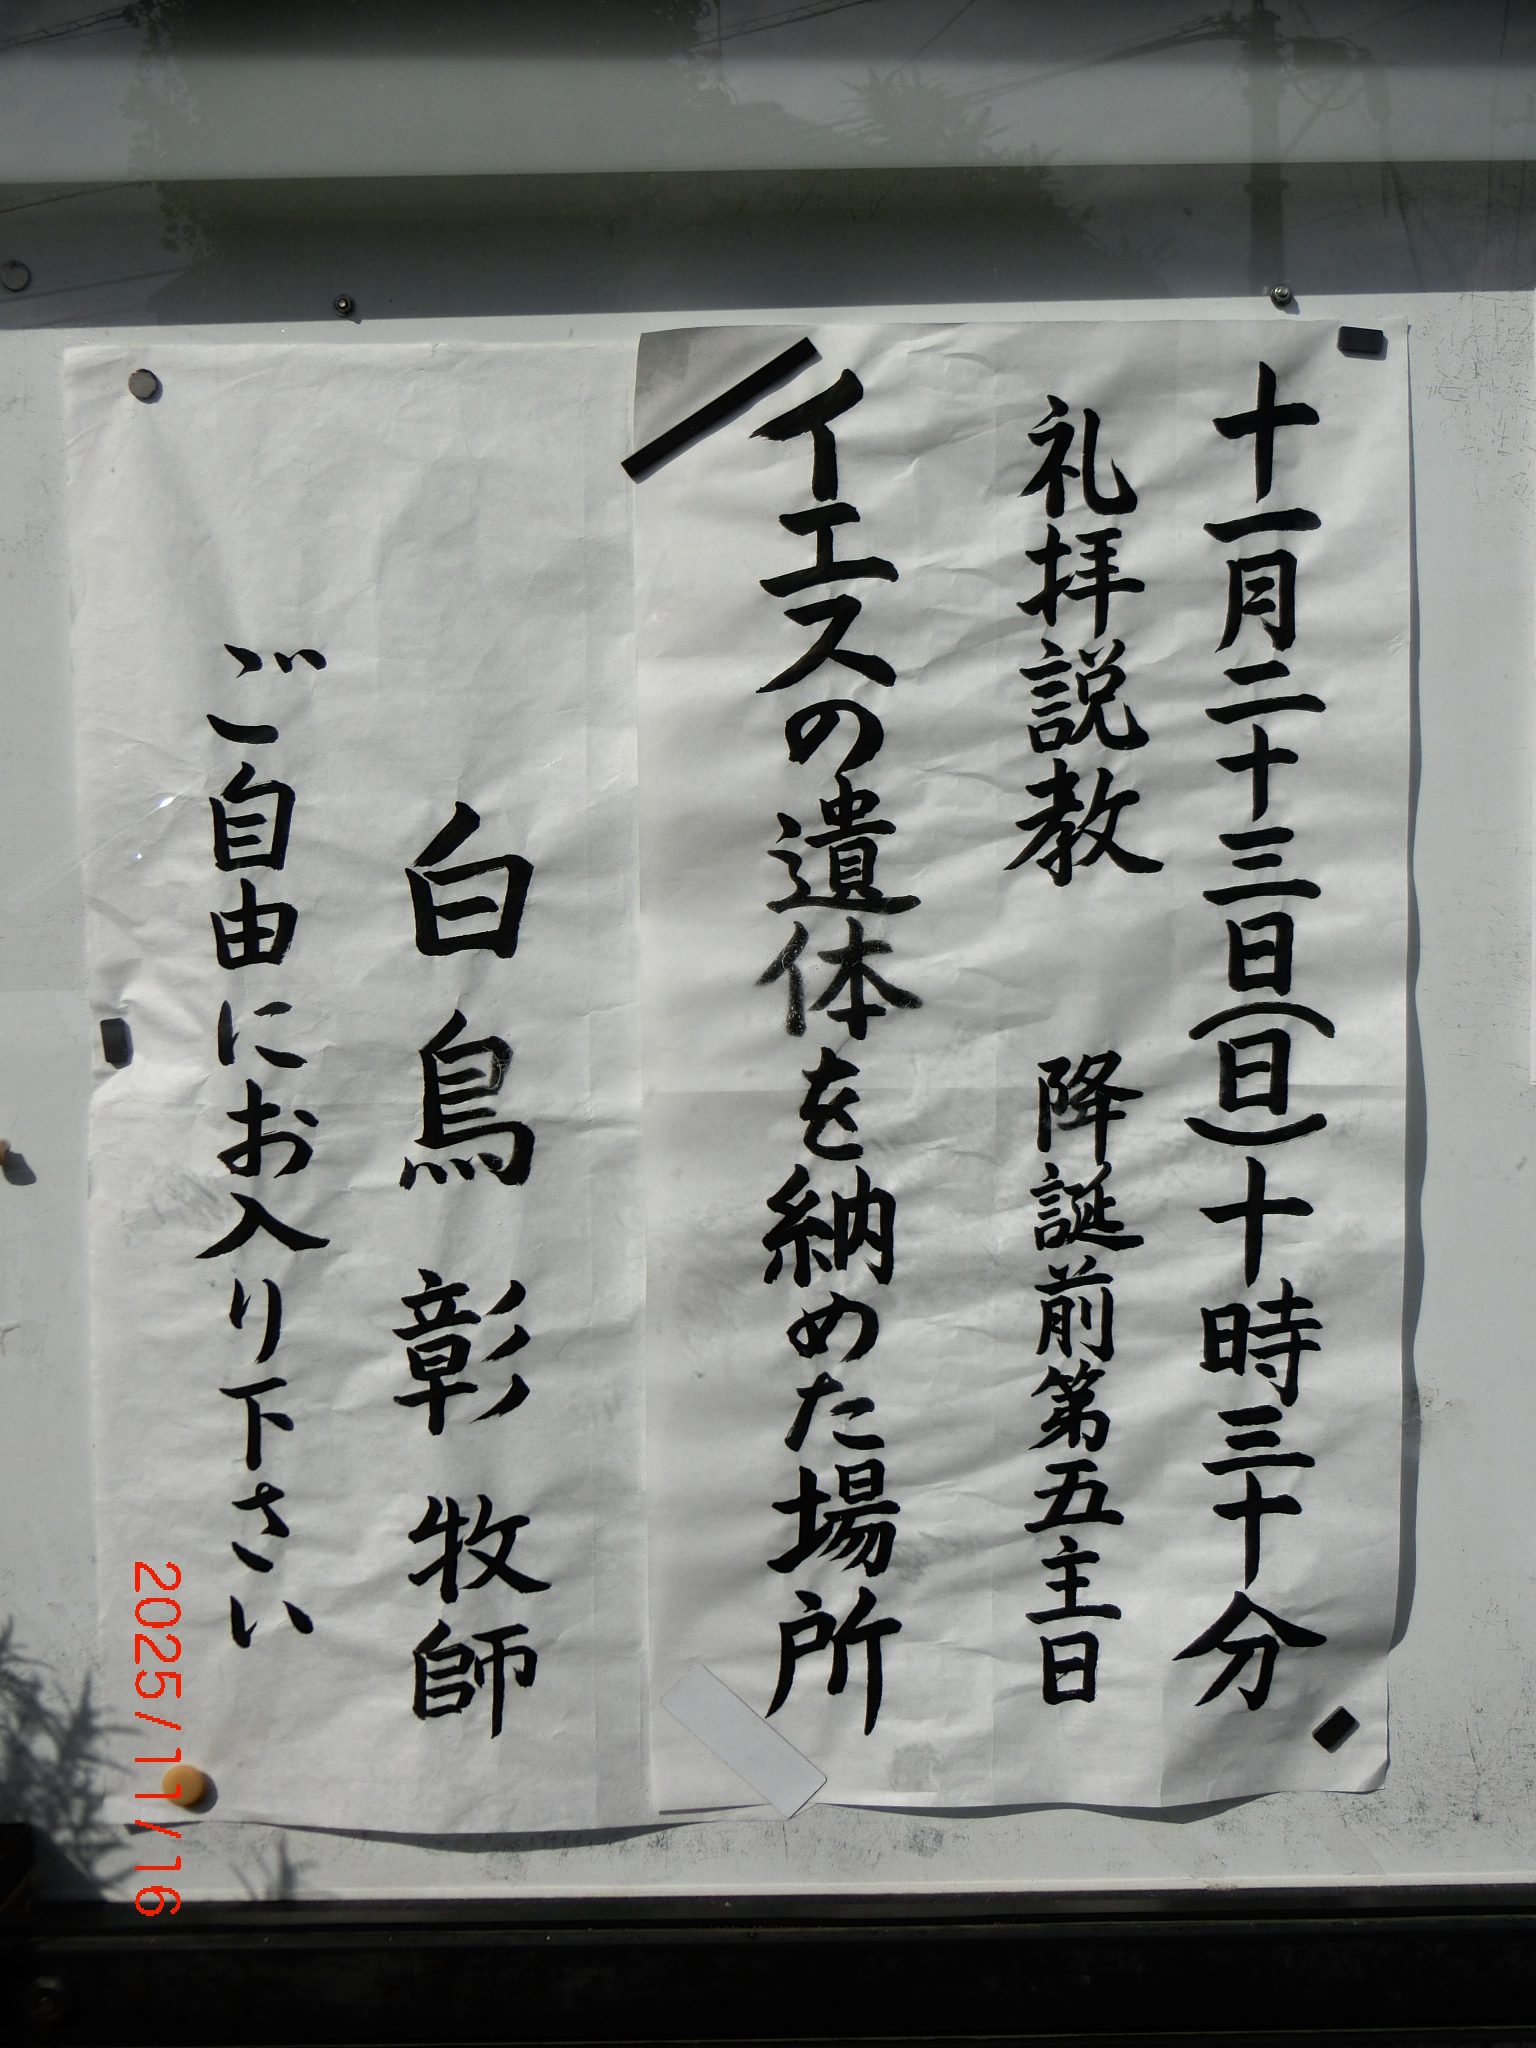 十一月二十三日(日)十時三十分
礼拝説教　降誕前第五主日
イエスの遺体を納めた場所
白鳥彰牧師
ご自由にお入り下さい
2025/11/16